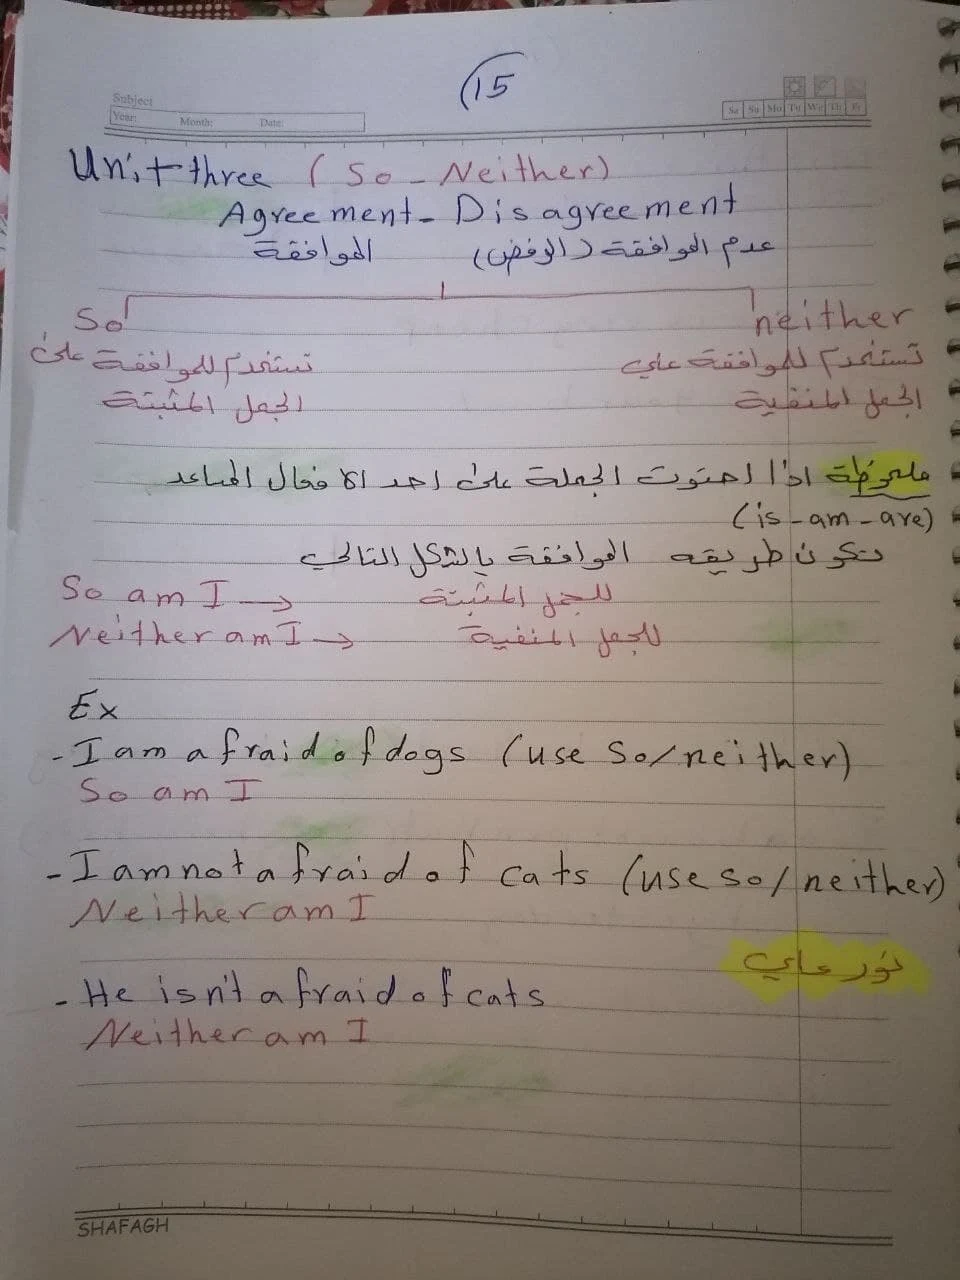 15
Subject
Year: Month: Date:
Sa Su Mo Tu We Th Fr
Unit three (So - Neither)
Agreement - Disagreement
الموافقة عدم الموافقة (الرفض)
So neither
تستخدم للموافقة على تستخدم للموافقة علي
الجمل المثبتة الجمل المنفية
ملحوظة اذا احتوت الجملة على احد الافعال المساعد
(is - am - are)
تكون طريقه الموافقة بالشكل التالي
So am I → للجمل المثبتة
Neither am I → للجمل المنفية
Ex
- I am afraid of dogs (use So/neither)
So am I
- I am not afraid of cats (use so/neither)
Neither am I
نور علي
- He isn't afraid of cats
Neither am I
SHAFAGH